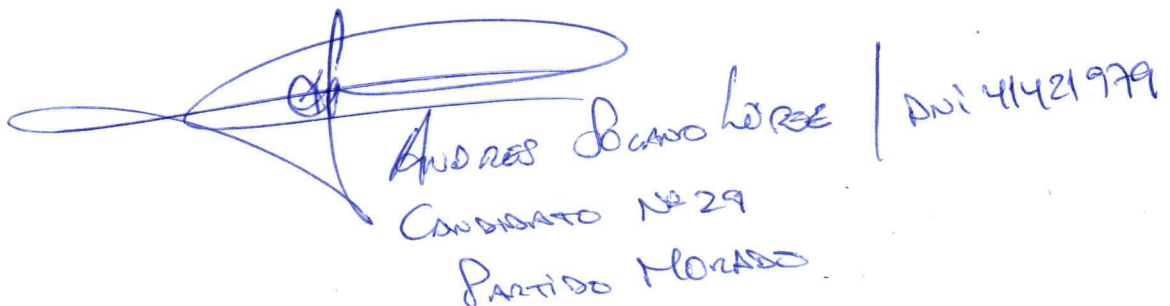 ANDRES LOCANO LÓPEZ | DNi 41421979
CANDIDATO Nº 29
PARTIDO MORADO